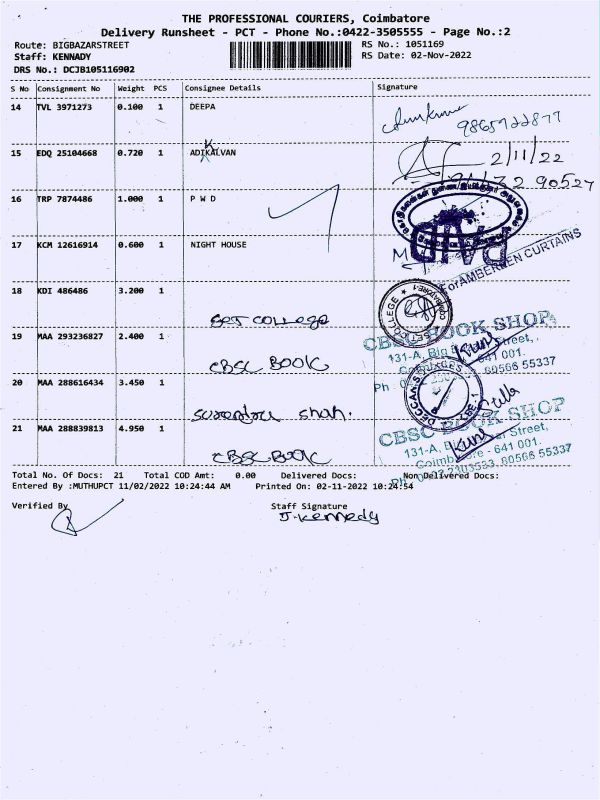 THE PROFESSIONAL COURIERS, Coimbatore
Delivery Runsheet - PCT - Phone No.:0422-3505555 - Page No.:2
Route: BIGBAZARSTREET RS No.: 1051169
Staff: KENNADY RS Date: 02-Nov-2022
DRS No.: DCJB105116902
S No Consignment No Weight PCS Consignee Details Signature
14 TVL 3971273 0.100 1 DEEPA
9865722877
15 EDQ 25104668 0.720 1 ADIKALVAN 2/11/22
90527
16 TRP 7874486 1.000 1 P W D
PAID
17 KCM 12616914 0.600 1 NIGHT HOUSE
For AMBERKEN CURTAINS
18 KDI 486486 3.200 1
COLLEGE
19 MAA 293236827 2.400 1 CBSC BOOK
CBSC BOOK SHOP
131-A, Big Street,
641 001.
80566 55337
20 MAA 288616434 3.450 1 shah.
DECCAN
Stella
21 MAA 288839813 4.950 1 CBSC BOOK
CBSC BOOK SHOP
131-A, Street,
Coimbatore - 641 001.
80566 55337
Total No. Of Docs: 21 Total COD Amt: 0.00 Delivered Docs: Non Delivered Docs:
Entered By :MUTHUPCT 11/02/2022 10:24:44 AM Printed On: 02-11-2022 10:24:54
Verified By Staff Signature
J. Kennedy